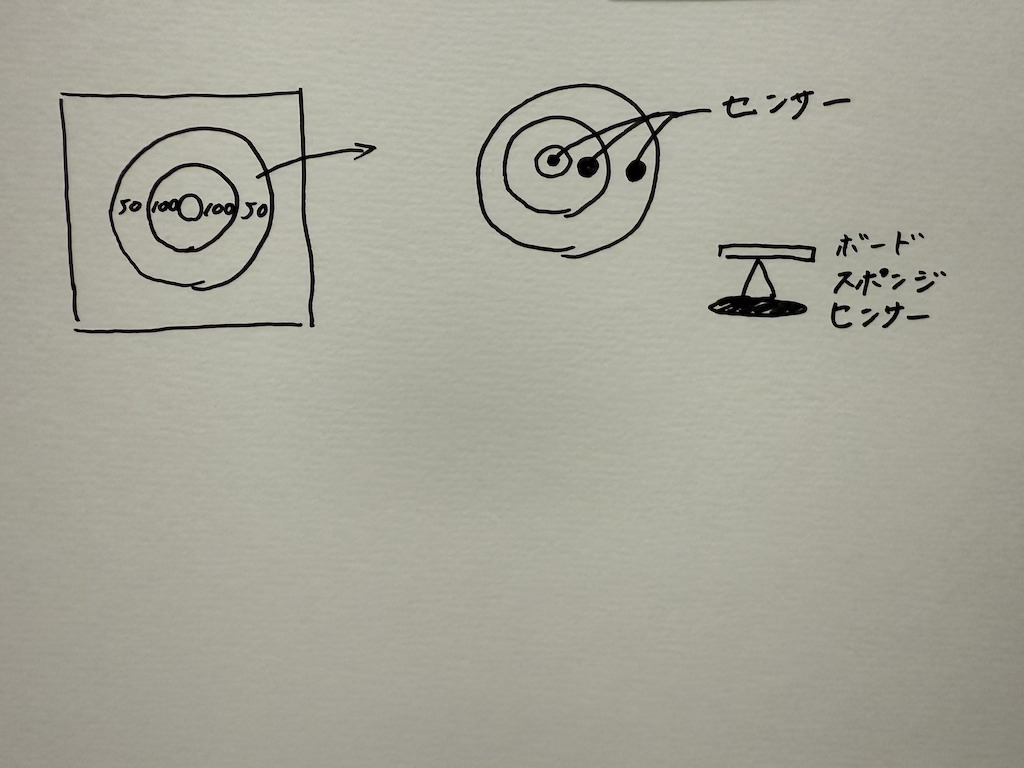 50 100 100 50
センサー
ボード
スポンジ
センサー